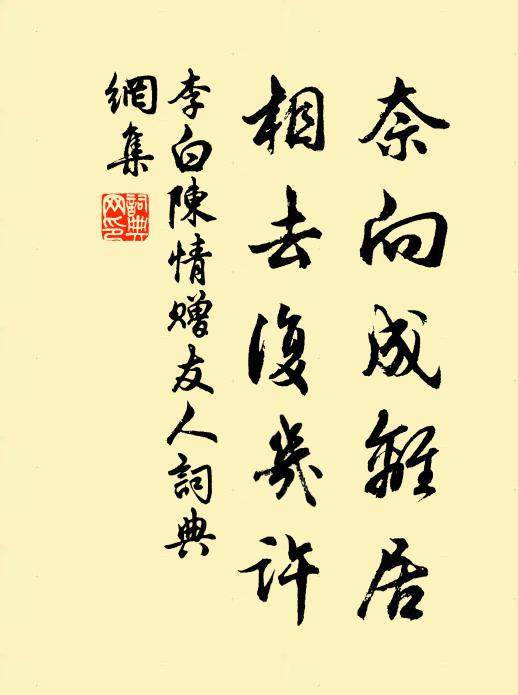 奈向成離居
相去復幾許
李白陳情贈友人詞典
網集
詞典
网印